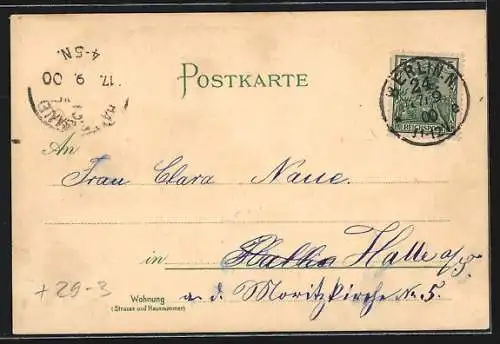 4-5N.
17. 9. 00
POSTKARTE
BERLIN. N.
24
17/9
00
11-12
An
Frau Clara Naue.
in Halle a/S.
a. d. Moritzkirche No. 5.
Wohnung
(Strasse und Hausnummer)
+29-3